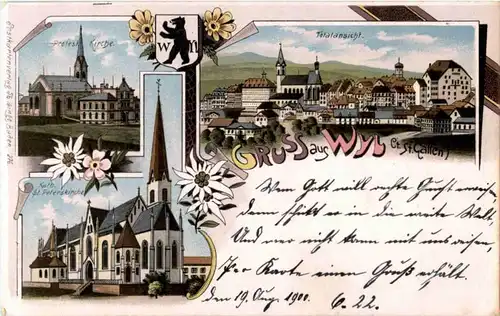 Protest. Kirche.
W Y L
Totalansicht.
GRUSS aus WYL (Ct. St. Gallen)
Kath.
St. Peterskirche
Wem Gott will rechte Gunst erweisen,
dem schickt er in die weite Welt,
Und wer nicht kann mit uns reisen,
Per Karte einen Gruß erhält.
den 19. Aug. 1900. 6.22.